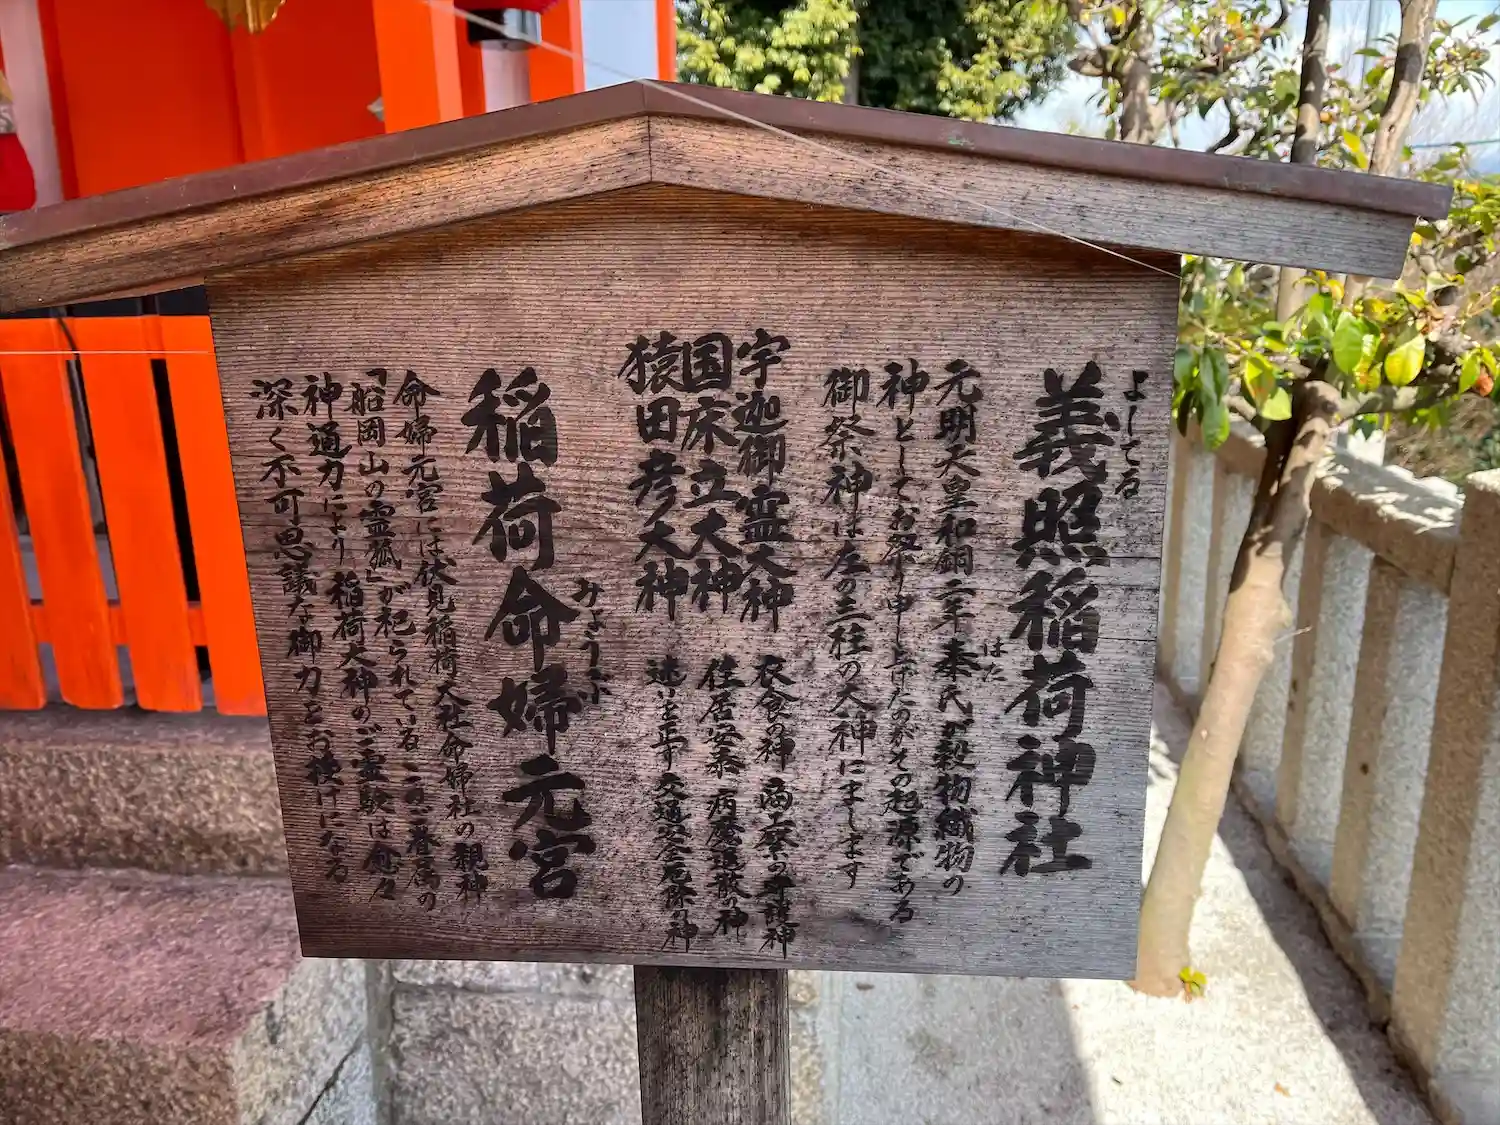 よしてる
義照稲荷神社
はた
元明天皇和銅二年秦氏が穀物織物の
神としてお祭り申し上げたのがその起源である
御祭神は左の三柱の大神にまします
宇迦御霊大神 衣食の神 商工業の守護神
国床立大神 住居安泰 病魔退散の神
猿田彦大神 迷いを正す 交通安全厄除の神
みょうぶ
稲荷命婦元宮
命婦元宮には伏見稲荷大社命婦社の親神
「船岡山の霊狐」が祀られている この眷属の
神通力により稲荷大神のご霊験は愈々
深く不可思議な御力をお授けになる